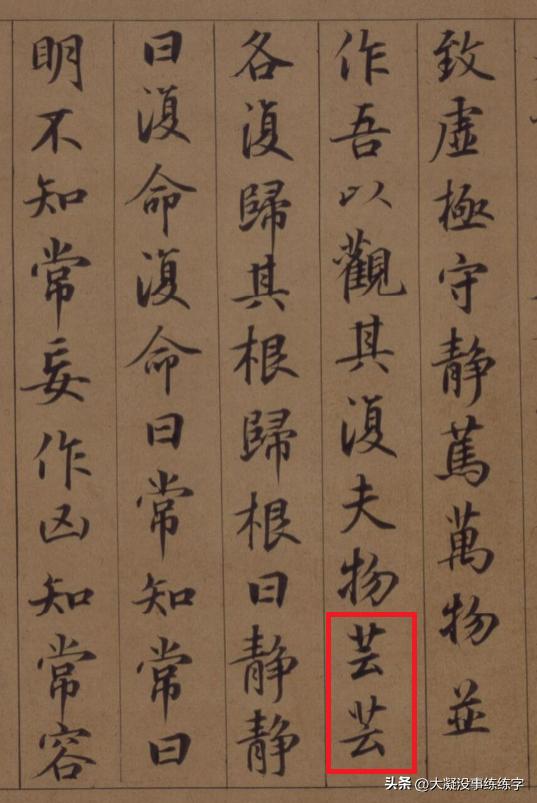 致虛極守静篤萬物並
作吾以觀其復夫物芸芸
各復歸其根歸根曰静静
曰復命復命曰常知常曰
明不知常妄作凶知常容
头条 @大凝没事练练字